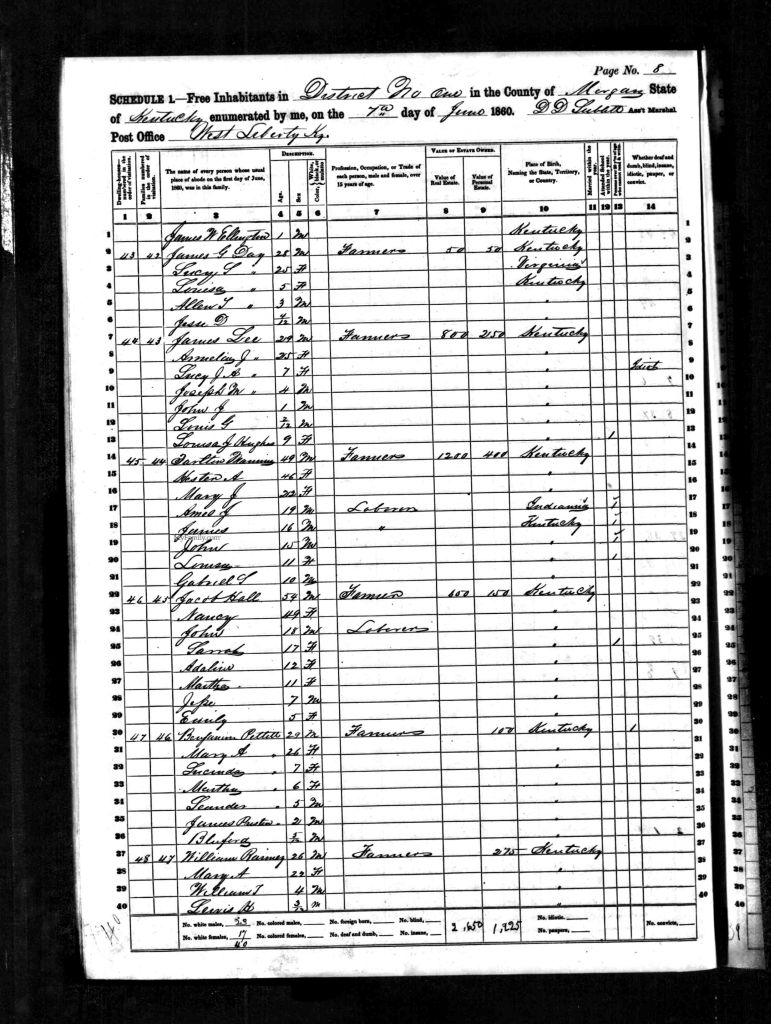 Page No. 8
SCHEDULE 1.—Free Inhabitants in District No One in the County of Morgan State
of Kentucky enumerated by me, on the 7th day of June 1860. D D Ass't Marshal.
Post Office West Liberty Ky.
DESCRIPTION. VALUE OF ESTATE OWNED.
Dwelling-houses—numbered in the order of visitation. Families numbered in the order of visitation. The name of every person whose usual place of abode on the first day of June, 1860, was in this family. Age. Sex. Color, Profession, Occupation, or Trade of each person, male and female, over 15 years of age. Value of Real Estate. Value of Personal Estate. Place of Birth, Naming the State, Territory, or Country. Married within the year. Attended School within the year. Whether deaf and dumb, blind, insane, idiotic, pauper, or convict.
1 2 3 4 5 6 7 8 9 10 11 12 13 14
1 James W Ellington 1 M Kentucky 1
2 43 42 James G Day 28 M Farmers 50 50 Kentucky 2
3 Lucy S " 25 F Virginia 3
4 Louisa " 5 F Kentucky 4
5 Allen T " 3 M " 5
6 Jesse D M " 6
7 44 43 James Lee 29 M Farmers 800 250 Kentucky 7
8 J " 25 F " 8
9 Lucy J A " 7 F " Idiot 9
10 Joseph M " 4 M " 10
11 John J 1 M " 11
12 Louis G 2/12 M " 12
13 Louisa J Hughes 9 F " 1 13
14 45 44 49 M Farmers 1200 400 Kentucky 14
15 Hester A 46 F " 15
16 Mary J 22 F " 16
17 Amos J 19 M Laborer Indiana 1 17
18 James 16 M " Kentucky 1 18
19 John 15 M " 1 19
20 Louisa 11 F " 1 20
21 Gabriel S 10 M " 21
22 46 45 Jacob Hall 54 M Farmer 600 150 Kentucky 22
23 Nancy 49 F " 23
24 John 18 M Laborers " 24
25 Sarah 17 F " 1 25
26 Adaline 12 F " 26
27 Martha 11 F " 27
28 Jesse 7 M " 28
29 Emily 5 F " 29
30 47 46 Benjamin 29 M Farmers 100 Kentucky 1 30
31 Mary A " 26 F " 31
32 Lucinda " 7 F " 32
33 Martha " 6 F " 33
34 Leander " 5 M " 34
35 James " 2 M " 35
36 Bluford M " 36
37 48 47 William Rainey 26 M Farmers 275 Kentucky 37
38 Mary A 22 F " 38
39 William T 4 M " 39
40 Lewis H 3/12 M " 40
No. white males, 23 No. colored males, No. foreign born, No. blind, 2,650 1,225 No. idiotic, No. convicts,
No. white females, 17 No. colored females, No. deaf and dumb, No. insane, No. paupers,
40